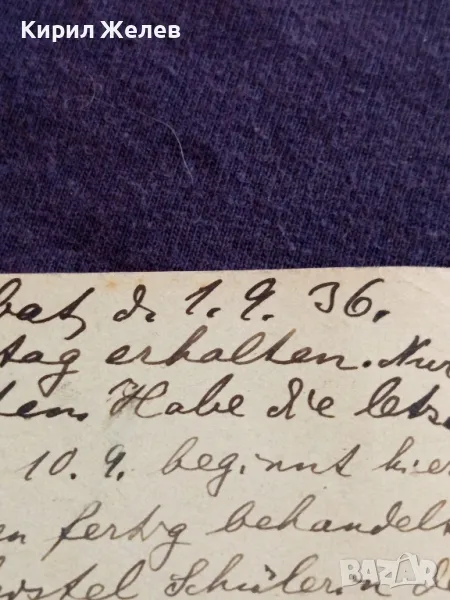 Кирил Желев
d. 1.9.36.
tag erhalten. Nur
Habe die letz
10.9. beginnt hier
en fertig behandelt
Schülerin de
BAZAR